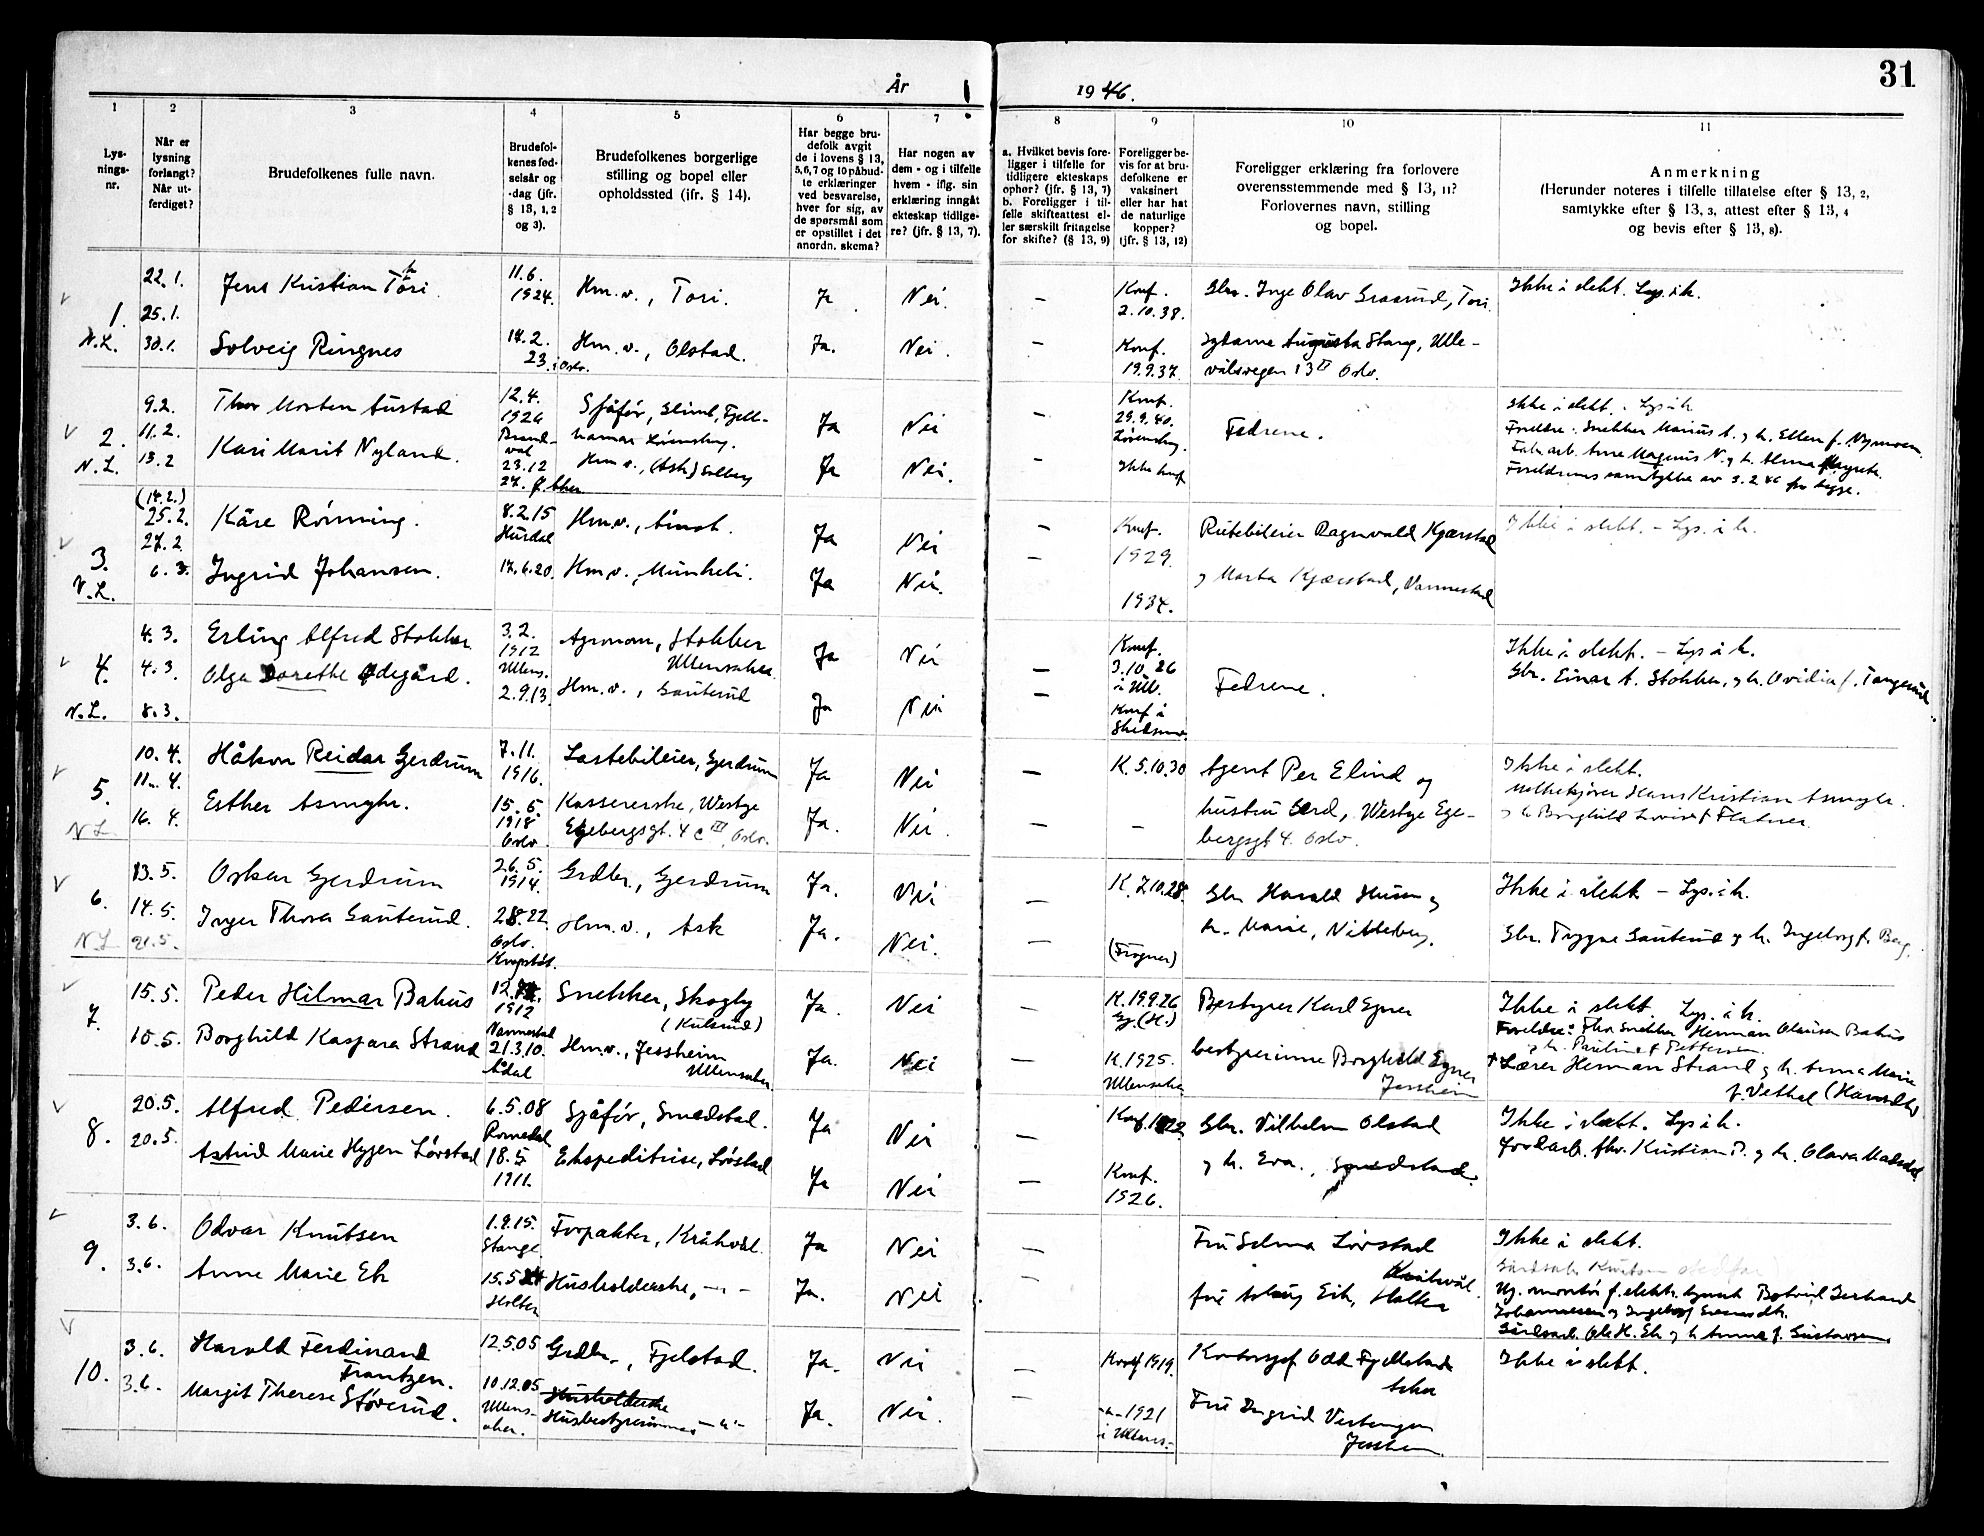 År 1946.
31
1
2
3
4
5
6
7
8
9
10
11
Lys-
nings-
nr.
Når er
lysning
forlangt?
Når ut-
ferdiget?
Brudefolkenes fulle navn.
Brudefol-
kenes fød-
selsår og
-dag (jfr.
§ 13, 1, 2
og 3).
Brudefolkenes borgerlige
stilling og bopel eller
opholdssted (jfr. § 14).
Har begge bru-
defolk avgit
de i lovens § 13,
5,6,7 og 10 påbud-
te erklæringer
ved besvarelse,
hver for sig, av
de spørsmål som
er opstillet i det
anordn. skema?
Har nogen av
dem - og i tilfelle
hvem - iflg. sin
erklæring inngåt
ekteskap tidlige-
re? (jfr. § 13, 7).
a. Hvilket bevis fore-
ligger i tilfelle for
tidligere ekteskaps
ophør? (jfr. § 13, 7)
b. Foreligger i til-
felle skifteattest el-
ler særskilt fritagelse
for skifte? (§ 13, 9)
Foreligger be-
vis for at bru-
defolkene er
vaksinert
eller har hat
de naturlige
kopper?
(jfr. § 13, 12)
Foreligger erklæring fra forlovere
overensstemmende med § 13, 11?
Forlovernes navn, stilling
og bopel.
Anmerkning
(Herunder noteres i tilfelle tillatelse efter § 13, 2,
samtykke efter § 13, 3, attest efter § 13, 4
og bevis efter § 13, 8).
1.
N.L.
22.1.
25.1.
30.1.
Jens Kristian Tori
11.6.
1924.
Hm.v., Tori.
Ja
Nei.
Konf.
2.10.38.
Gbr. Inge Olav Graarud, Tori
Ikke i slekt. Lys. i k.
Solveig Ringnes
14.2.
23. i Oslo.
Hm.v., Olstad.
Ja.
Nei.
Konf.
19.9.37.
Augusta Stang, Ulle-
vålsvegen 13 Oslo.
2.
N.L.
9.2.
11.2.
13.2
Thor Morten Austad
12.4.
1926
Brand-
val
Sjåfør, Fjell-
hamar Lørenskog.
Ja
Nei
Konf.
29.9.40.
Lørenskog.
Fedrene.
Ikke i slekt. - Lys i k.
Foreldre: Snekker Marius A. og h. Ellen f. Nymoen.
Kari Marit Nyland.
23.12
27.
Hm v., (Ask) Solberg
Ja
Nei.
Ikke konf
Fab. arb. Arne Magnus N. og h. Alma
Foreldrenes samtykke av 3.2.46 fra begge.
3.
N.L.
(14.2.)
25.2.
27.2.
6.3.
Kåre Rønning.
8.2.15
Hurdal
Hm.v., Ånest.
Ja
Nei
Konf.
1929.
Rutebileier Ragnvald Kjærstad
Ikke i slekt. - Lys. i k.
Ingrid Johansen.
14.6.20.
Hm.v., Munkeli.
Ja
Nei.
1934.
og Marta Kjærstad, Nannestad
4.
N.L.
4.3.
4.3.
8.3.
Erling Alfred Stokker
3.2.
1912
Ullens.
Agronom, Stokker
Ullensaker
Ja
Nei
Konf.
3.10.26
i Ull.
Fedrene.
Ikke i slekt. - Lys i k.
Gbr. Einar A. Stokker, og h. Ovidia f. Tangerud.
Olga Dorethe Ødegård.
2.9.13.
Hm.v., Sauterud
Ja
Nei
Konf i
Skedsmo.
5.
NL
10.4.
11.4.
16.4.
Håkon Reidar Gjerdrum
7.11.
1916.
Lastebileier, Gjerdrum
Ja
Nei
K. 5.10.30
Agent Per Elind og
Ikke i slekt.
Esther Asmyhr.
15.5.
1918.
Oslo.
Kassererske, Westye
Egebergsgt. 4 c III, Oslo.
Ja.
Nei.
hustru Gerd, Westye Ege-
bergsgt 4. Oslo.
melkekjører Hans Kristian Asmyhr.
og h. Borghild Lovise f. Flatner.
6.
NL
13.5.
14.5.
21.5.
Oskar Gjerdrum
26.5.
1914.
Grdbr., Gjerdrum
Ja.
Nei
K. 7.10.28.
Gbr Harald Huser og
h. Marie, Nitteberg.
Ikke i slekt - Lys. i k.
Inger Thora Sauterud.
28.22.
Oslo.
Hm.v., Ask
Ja.
Nei.
(Frogner)
Gbr. Trygve Sauterud og h. Ingeborg f. Berg.
7.
15.5.
10.5.
Peder Hilmar Bakus
12.
1912
Nannestad
Snekker, Skogly
(Kulsrud)
Ja.
Nei
K. 19.9.26
Gj. (H.)
Bestyrer Karl Egner
Ikke i slekt. Lys. i k.
Foreldre: Fhv Snekker Herman Olausen Bakus
og h. Pauline f Pettersen.
Borghild Kaspara Strand
21.3.10.
Ådal
Hm.v., Jessheim
Ullensaker.
Ja.
Nei
K. 1925.
Ullensaker
bestyrerinne Borghild Egner
Jessheim
Lærer Herman Strand og h. Anna Marie
f. Vethal
8.
20.5.
20.5.
Alfred Pedersen.
6.5.08
Romedal
Sjåfør, Smedstad.
Ja
Nei
Konf. 1922.
Gbr. Vilhelm Olstad
Ikke i slekt. Lys i k.
Astrid Marie Hygen Lørstad
18.5
1911.
Ekspeditrise, Lørstad
Ja
Nei
Konf.
1926.
og h. Eva., Smedstad.
Jordarb. fhv. Kristian P. og h. Olava
9.
3.6.
3.6.
Odvar Knutsen
1.9.15.
Stange
Forpakter, Kråkvål.
Ja
Nei
Fru Selma Lørstad
Kråkvål.
Ikke i slekt.
Anne Marie Ek
15.5.24
Holter
Husholderske, - " -
Ja.
Nei
fru Aslaug Eik, Holter
Johannessen og Ingeborg
Gårdsarb. Ole H. Ek og h Anna f. Gustavsen.
10.
3.6.
3.6.
Harald Ferdinand
Frantzen.
12.5.05
Grdbr., Fjelstad.
Ja.
Nei
Konf 1919.
Kontorsjef Odd Fjellstad
Asker
Ikke i slekt.
Margit Therese Støverud.
10.12.05
Ullens-
aker.
Husholderske
Husbestyrerinne - " -
Ja.
Nei.
- " - 1921
i Ullens.-
Fru Ingrid Vestengen
Jessheim.